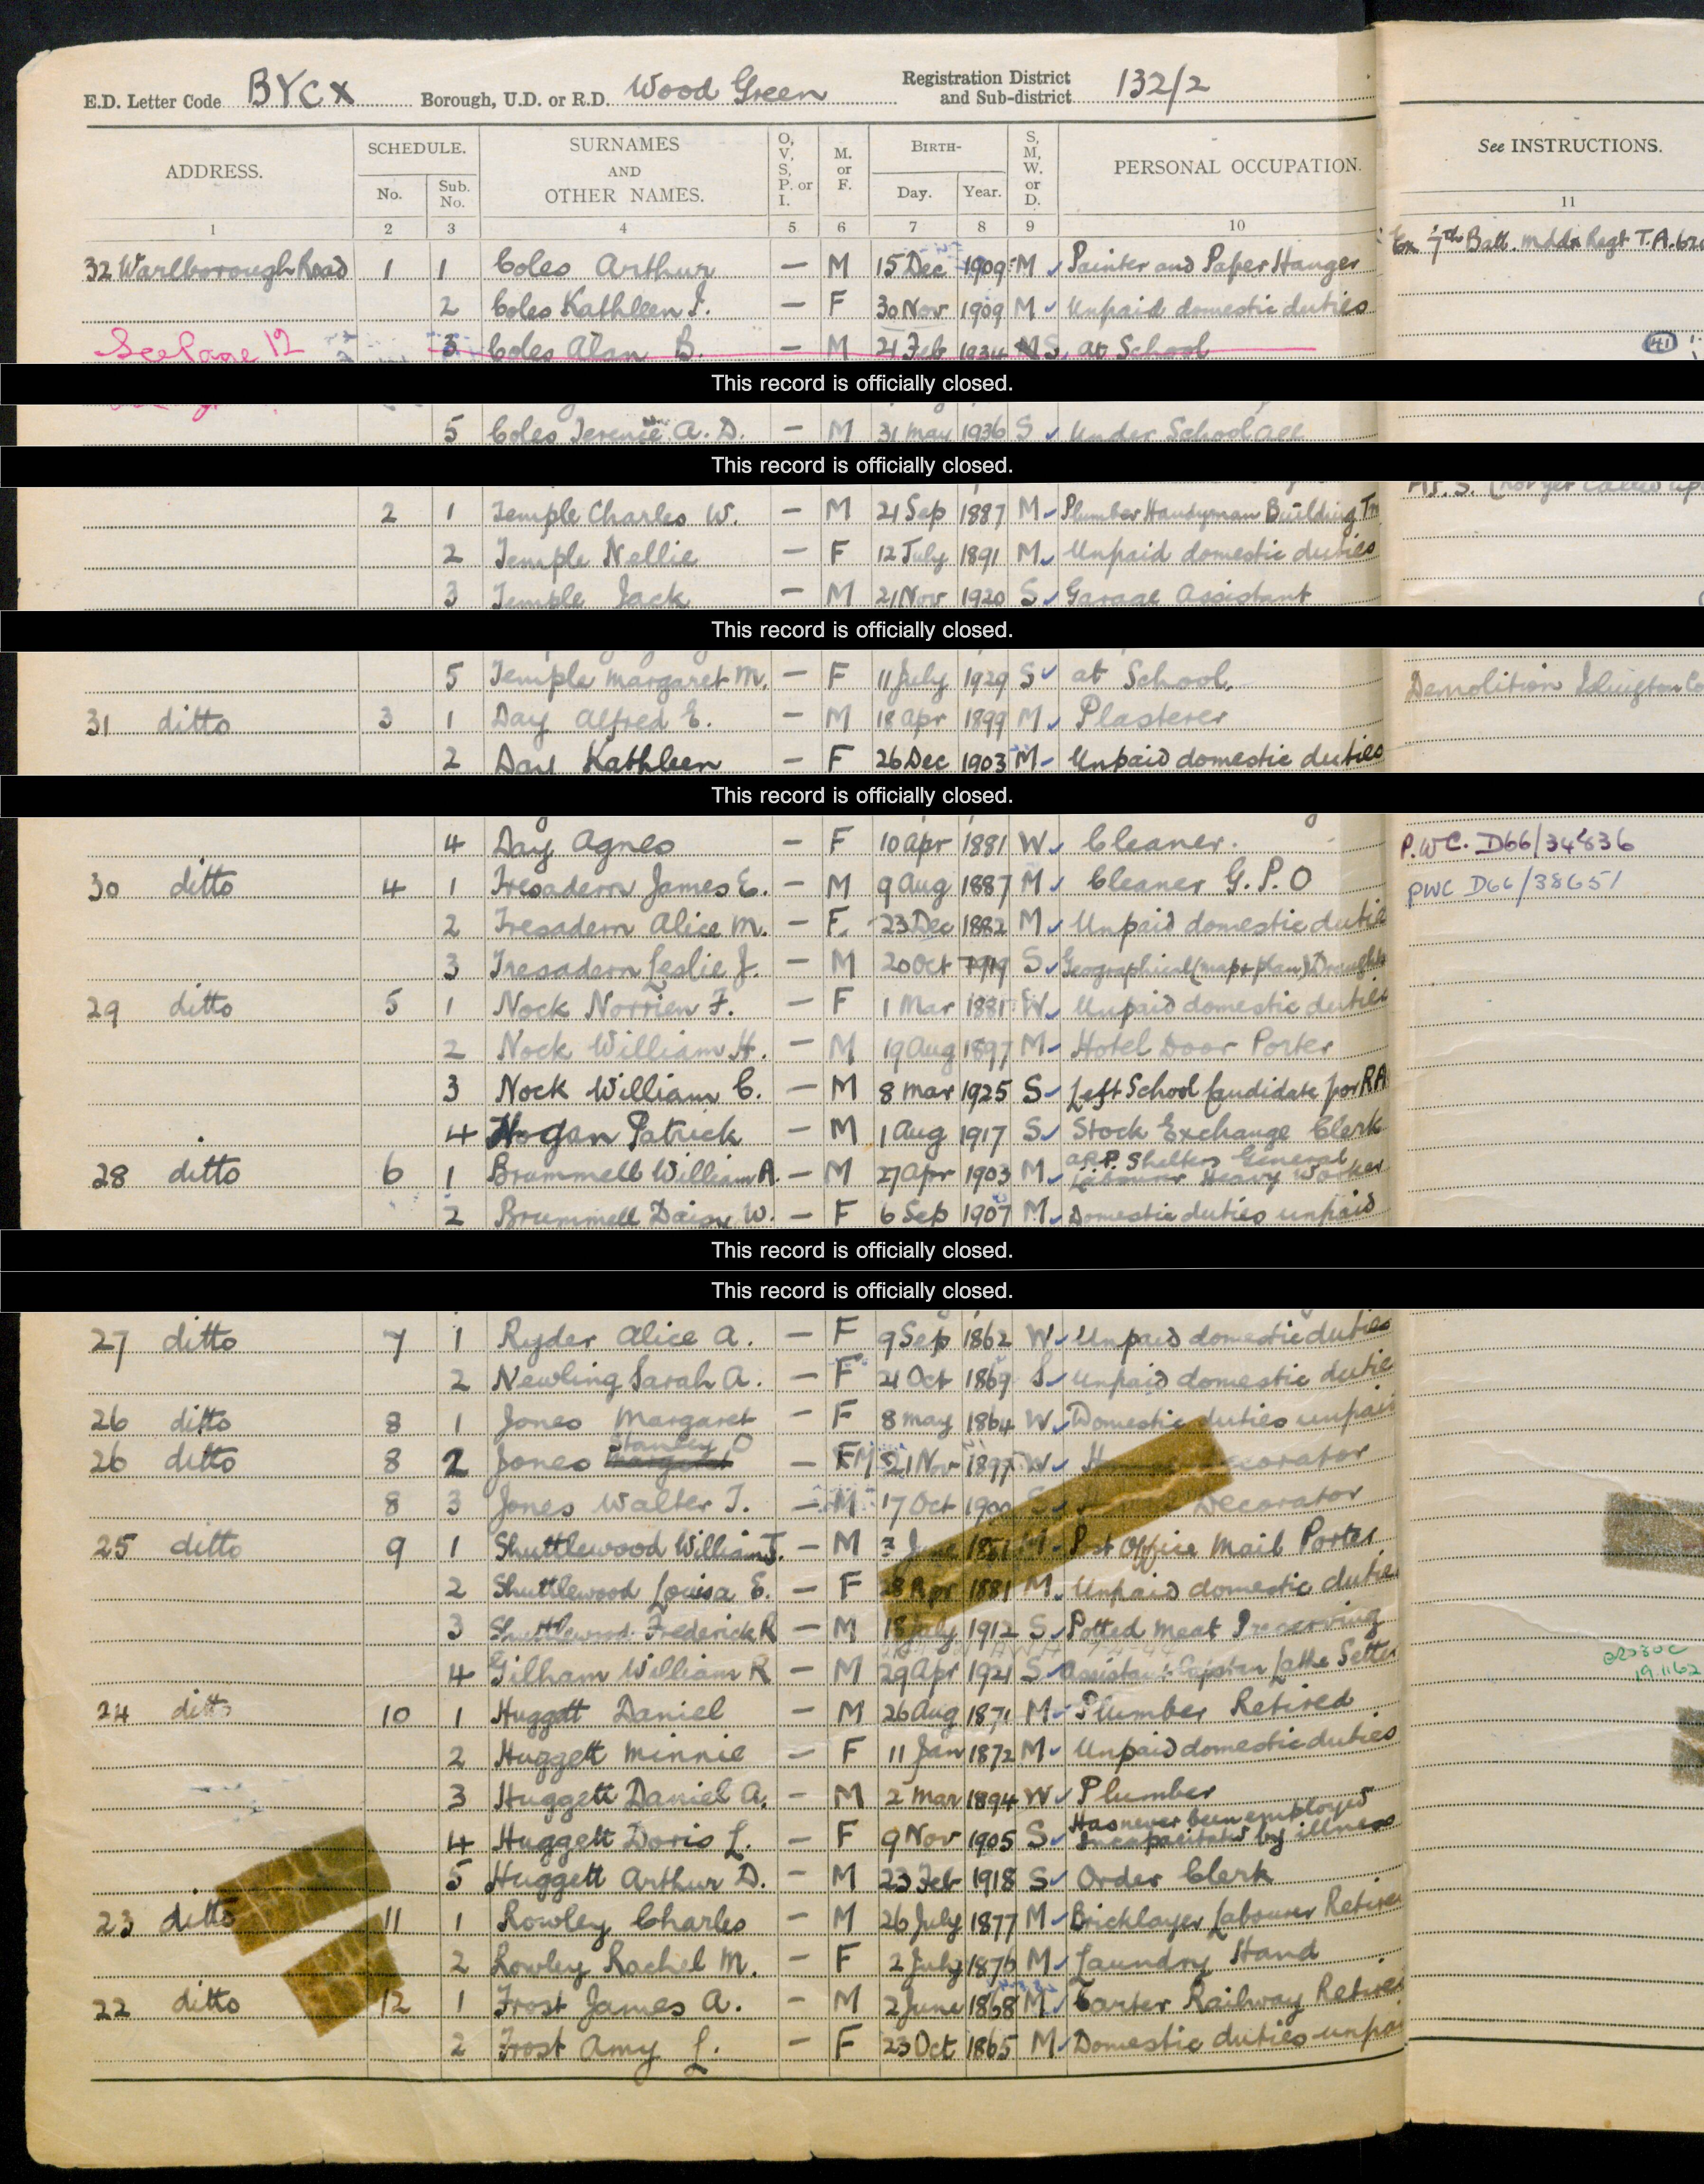 E.D. Letter Code BYCX Borough, U.D. or R.D. Wood Green Registration District and Sub-district 132/2
ADDRESS. SCHEDULE. No. Sub. No. SURNAMES AND OTHER NAMES. O, V, S, P. or I. M. or F. BIRTH- Day. Year. S, M, W. or D. PERSONAL OCCUPATION. See INSTRUCTIONS.
1 2 3 4 5 6 7 8 9 10 11
32 Warlborough Road 1 1 Coles Arthur — M 15 Dec 1909 M Painter and Paper Hanger Ex 7th Batt. Mddx Regt T.A.
2 Coles Kathleen I. — F 30 Nov 1909 M Unpaid domestic duties
See Page 12 3 Coles Alan B. — M 21 Feb 1934 S at School 41
This record is officially closed.
5 Coles Terence A. D. — M 31 May 1936 S Under School age
This record is officially closed.
2 1 Temple Charles W. — M 21 Sep 1887 M Plumber Handyman Building
2 Temple Nellie — F 12 July 1891 M Unpaid domestic duties
3 Temple Jack — M 21 Nov 1920 S Garage Assistant
This record is officially closed.
5 Temple Margaret M. — F 11 July 1929 S at School. Demolition Islington
31 ditto 3 1 Day Alfred E. — M 18 Apr 1899 M Plasterer
2 Day Kathleen — F 26 Dec 1903 M Unpaid domestic duties
This record is officially closed.
4 Day Agnes — F 10 Apr 1881 W Cleaner. P.W.C. D66/34836
30 ditto 4 1 Tresadern James E. — M 9 Aug 1887 M Cleaner G.P.O PWC D66/38651
2 Tresadern Alice M. — F 23 Dec 1882 M Unpaid domestic dutie
3 Tresadern Leslie J. — M 20 Oct 1919 S Geographical (map + plan) Draught
29 ditto 5 1 Nock Norrien F. — F 1 Mar 1881 W Unpaid domestic duties
2 Nock William H. — M 19 Aug 1897 M Hotel Door Porter
3 Nock William C. — M 8 Mar 1925 S Left School Candidate for RA
4 Hogan Patrick — M 1 Aug 1917 S Stock Exchange Clerk
28 ditto 6 1 Brummell William A. — M 27 Apr 1903 M A.R.P. Shelters General Labourer Heavy Worker
2 Brummell Daisy W. — F 6 Sep 1907 M Domestic duties unpaid
This record is officially closed.
This record is officially closed.
27 ditto 7 1 Ryder Alice A. — F 9 Sep 1862 W Unpaid domestic duties
2 Newling Sarah A. — F 21 Oct 1869 S Unpaid domestic dutie
26 ditto 8 1 Jones Margaret — F 8 May 1864 W Domestic duties unpai
26 ditto 8 2 Jones Stanley O — M 21 Nov 1897 W Decorator
8 3 Jones Walter T. — M 17 Oct 1900 S Decorator
25 ditto 9 1 Shuttlewood William J. — M June 1881 M Post Office Mail Porter
2 Shuttlewood Louisa E. — F 28 Apr 1881 M Unpaid domestic dutie
3 Shuttlewood Frederick R — M 18 July 1912 S Potted Meat Preserving
4 Gilham William R — M 29 Apr 1921 S Assistant Capstan Lathe Setter 19.11.62
24 ditto 10 1 Huggett Daniel — M 26 Aug 1871 M Plumber Retired
2 Huggett Minnie — F 11 Jan 1872 M Unpaid domestic duties
3 Huggett Daniel A. — M 2 Mar 1894 W Plumber
4 Huggett Doris L. — F 9 Nov 1905 S Has never been employed Incapacitated by illness
5 Huggett Arthur D. — M 23 Feb 1918 S Order Clerk
23 ditto 11 1 Rowley Charles — M 26 July 1877 M Bricklayer Labourer Retire
2 Rowley Rachel M. — F 2 July 1876 M Laundry Hand
22 ditto 12 1 Frost James A. — M 2 June 1868 M Carter Railway Retire
2 Frost Amy L. — F 23 Oct 1865 M Domestic duties unpai